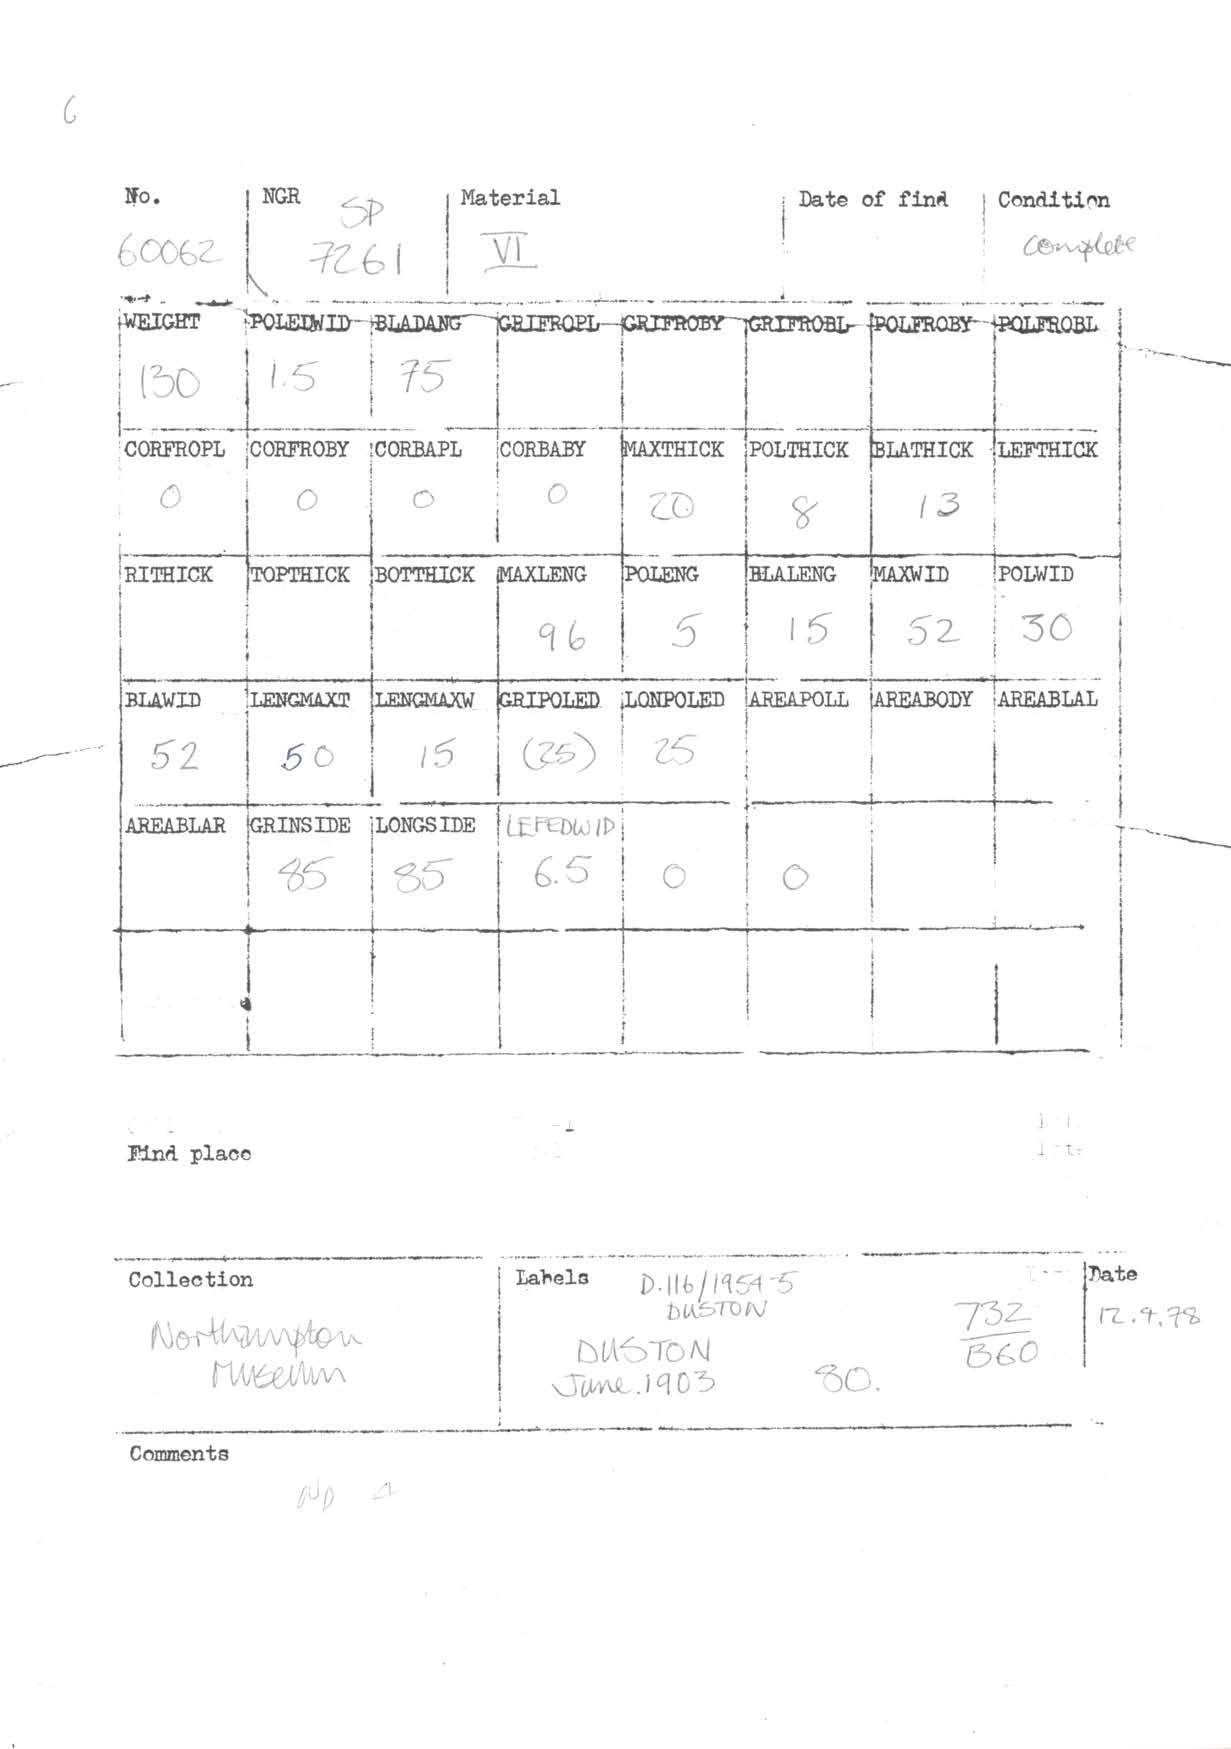 6
No. NGR Material Date of find Condition
SP
60062 7261 VI Complete
WEIGHT POLEDWID BLADANG GRIFROPL GRIFROBY GRIFROBL POLFROBY POLFROBL
130 1.5 75
CORFROPL CORFROBY CORBAPL CORBABY MAXTHICK POLTHICK BLATHICK LEFTHICK
0 0 0 0 20 8 13
RITHICK TOPTHICK BOTTHICK MAXLENG POLENG BLALENG MAXWID POLWID
96 5 15 52 30
BLAWID LENGMAXT LENGMAXW GRIPOLED LONPOLED AREAPOLL AREABODY AREABLAL
52 50 15 (25) 25
AREABLAR GRINSIDE LONGSIDE LEFEDWID
85 85 6.5 0 0
Find place
Collection Labels Date
Northampton
Museum
D.116/1954-5
DUSTON
DUSTON
June.1903 80.
732
B60
12.9.78
Comments
ND